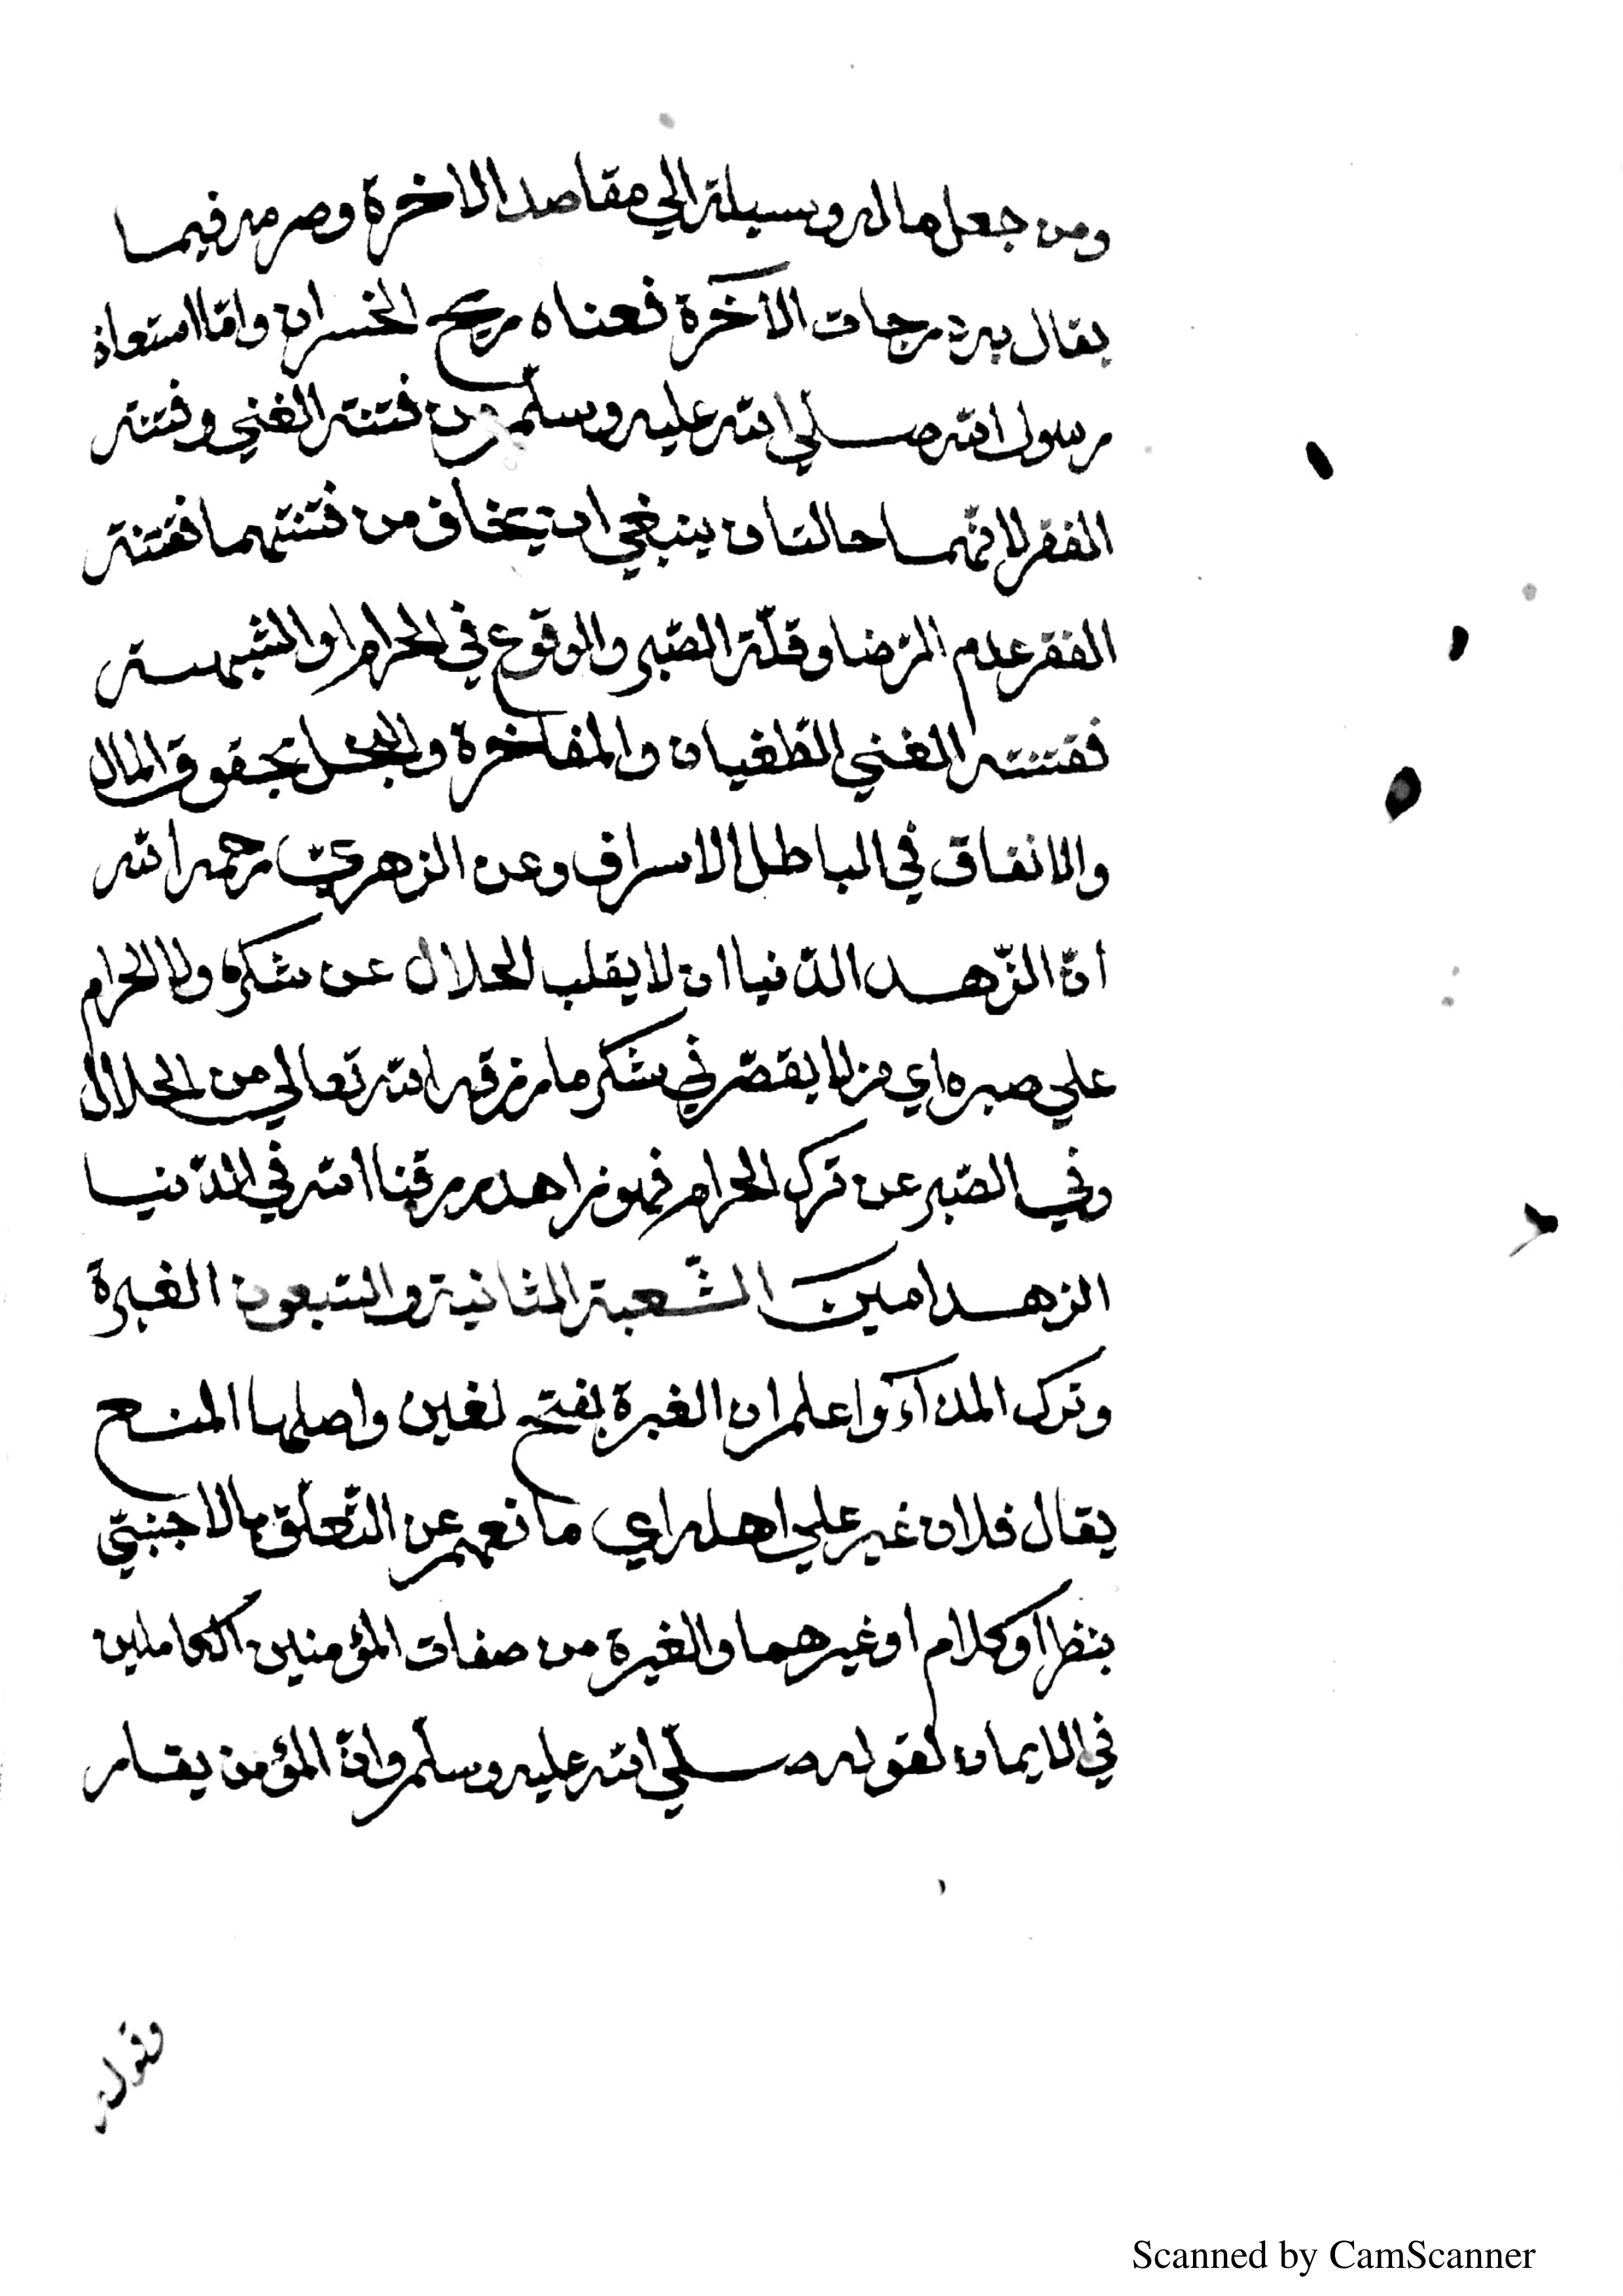 ومن جعل ماله وسيلة الي مقاصد الاخرة وصرفه فيما
يقال به درجات الآخرة فعناه ربح الخسران وامّا استعاذ
رسول الله صلي الله عليه وسلّم من فتنة الغني وفتنة
الفقر لانّهما حالتان ينبغي ان يتخاف من فتنتهما ففتنة
الفقر عدم الرّضا وقلّة الصّبر والوقوع في الحرام او الشبهة
ففتنة الغني الطغيان والمفاخرة والبخل بحقوق المال
والانفاق في الباطل الاسراف وعن الزهريّ رحمه الله
انّ الزّهد الدّنيا ان لا يقلب الحلال عن شكره ولا الحرام
علي صبره اي من لا يقصّر في شكر ما رزقه الله تعالي من الحلال
وفي الصّبر عن ترك الحرام فهو زاهد رزقنا الله في الدّنيا
الزهد امين الشّعبة الثانية والسّبعون الغيرة
وترك المذآء واعلم ان الغيرة بفتح لغين واصلها المنع
يقال فلان غير علي اهله اي مانعهم عن التّعلّق بالاجنبيّ
بنظر او كلام او غيرهما والغيرة من صفات المؤمنين الكاملين
في الايمان لقوله صلّي الله عليه وسلّم وانّ المؤمن يغار
وقوله
Scanned by CamScanner